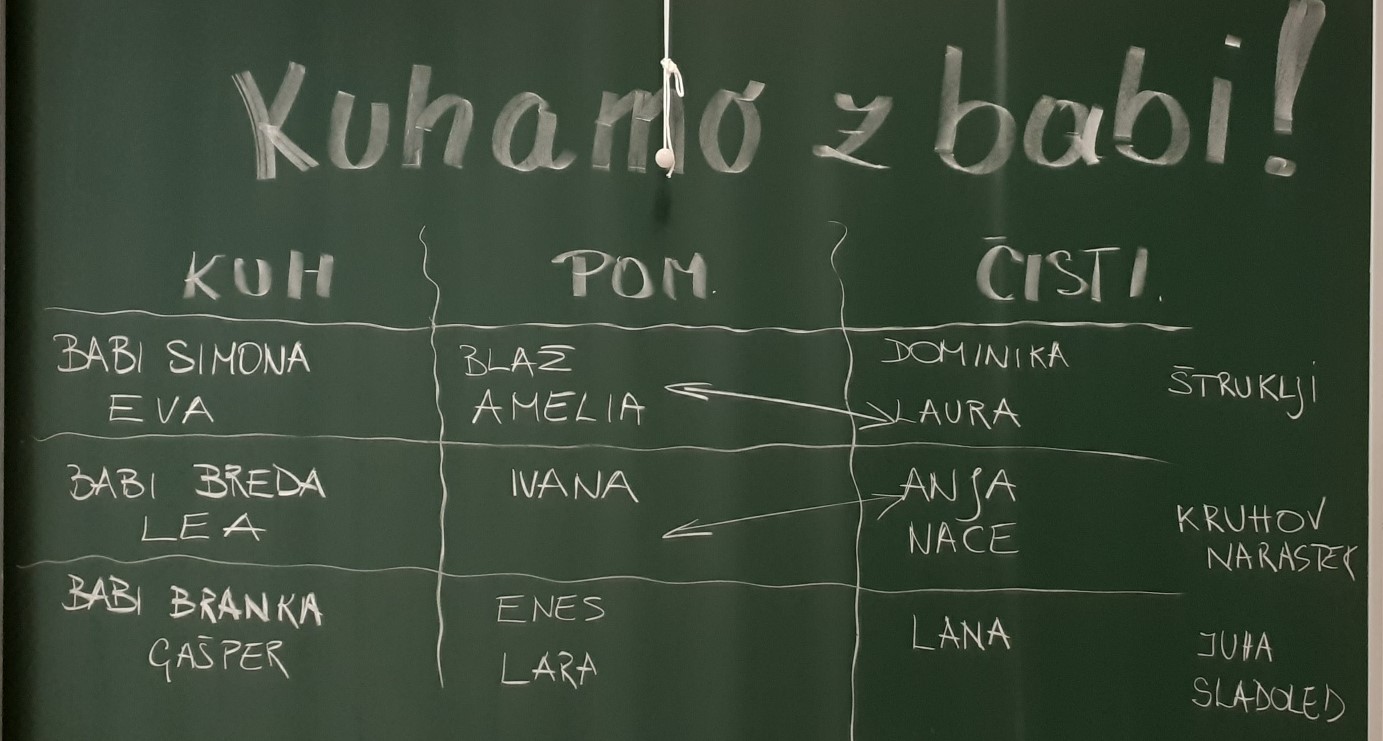 Kuhamo z babi!
KUH POM. ČISTI.
BABI SIMONA BLAŽ DOMINIKA
EVA AMELIA LAURA ŠTRUKLJI
BABI BREDA IVANA ANJA
LEA NACE KRUHOV
NARASTEK
BABI BRANKA ENES LANA
GAŠPER LARA JUHA
SLADOLED